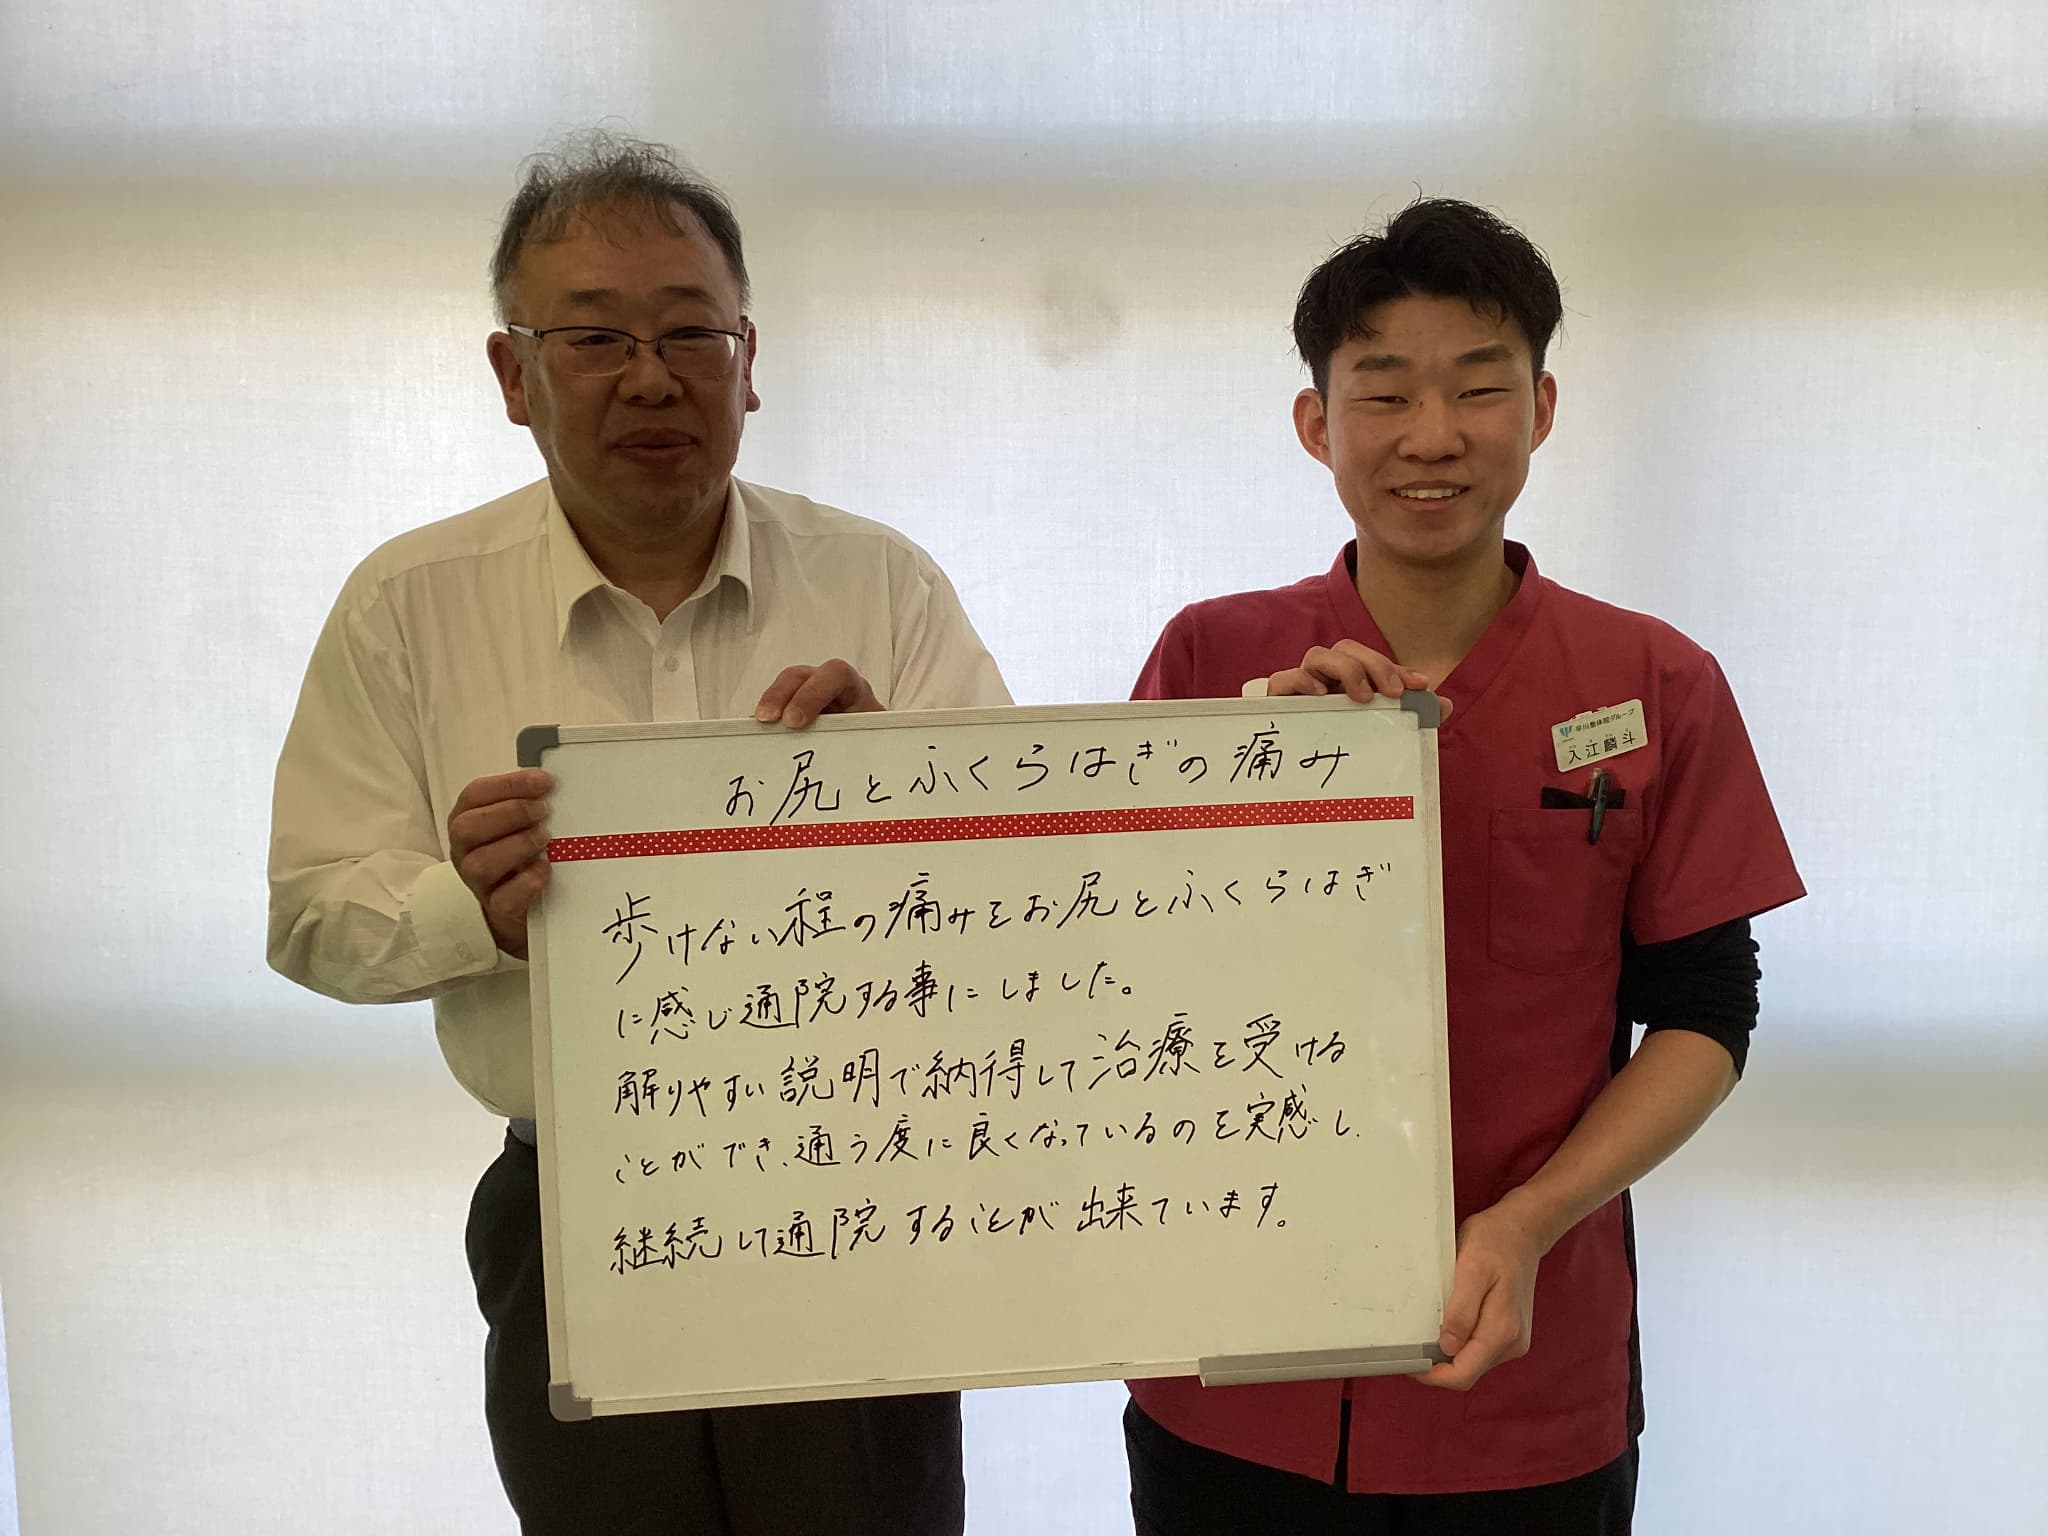 お尻とふくらはぎの痛み
歩けない程の痛みをお尻とふくらはぎ
に感じ通院する事にしました。
解りやすい説明で納得して治療を受ける
ことができ、通う度に良くなっているのを実感し、
継続して通院することが出来ています。
早川整体院グループ
入江麟斗